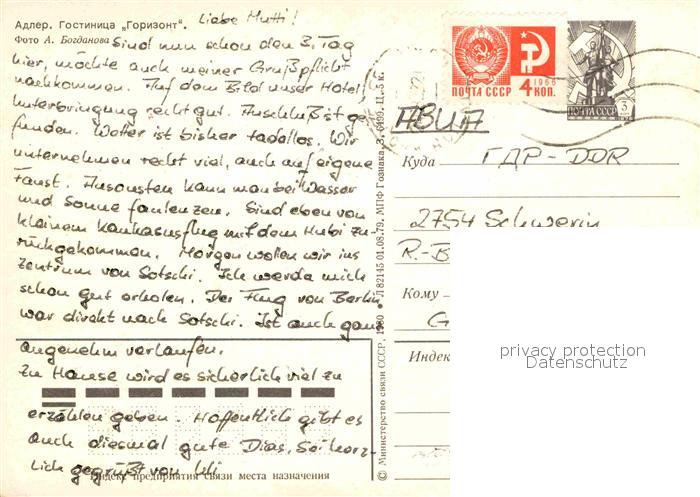 Адлер. Гостиница „Горизонт".
Фото А. Богданова
Liebe Mutti!
Sind nun schon den 3. Tag
hier, möchte auch meiner Grußpflicht
nachkommen. Auf dem Bild unser Hotel
Unterbringung recht gut. Anschluß ist ge-
funden. Wetter ist bisher tadellos. Wir
unternehmen recht viel, auch auf eigene
Faust. Ansonsten kann man bei Wasser
und Sonne faulenzen. Sind eben von
kleinem Kaukasusflug mit dem Hubi zu-
rückgekommen. Morgen wollen wir ins
Zentrum von Sotschi. Ich werde mich
schon gut erholen. Der Flug von Berlin
war direkt nach Sotschi. Ist auch ganz
angenehm verlaufen.
Zu Hause wird es sicherlich viel zu
erzählen geben. Hoffentlich gibt es
auch diesmal gute Dias. Sei herz-
lich gegrüßt von
Индекс предприятия связи места назначения
© Министерство связи СССР, 1980 Л 82145 01.08.79. МПФ Гознака, З. 6199. Ц. 5 к.
1966
ПОЧТА СССР 4 КОП.
3
ПОЧТА СССР
АВИА
Куда ГДР-DDR
2754 Schwerin
R.-B
Кому
G
Индек
privacy protection
Datenschutz